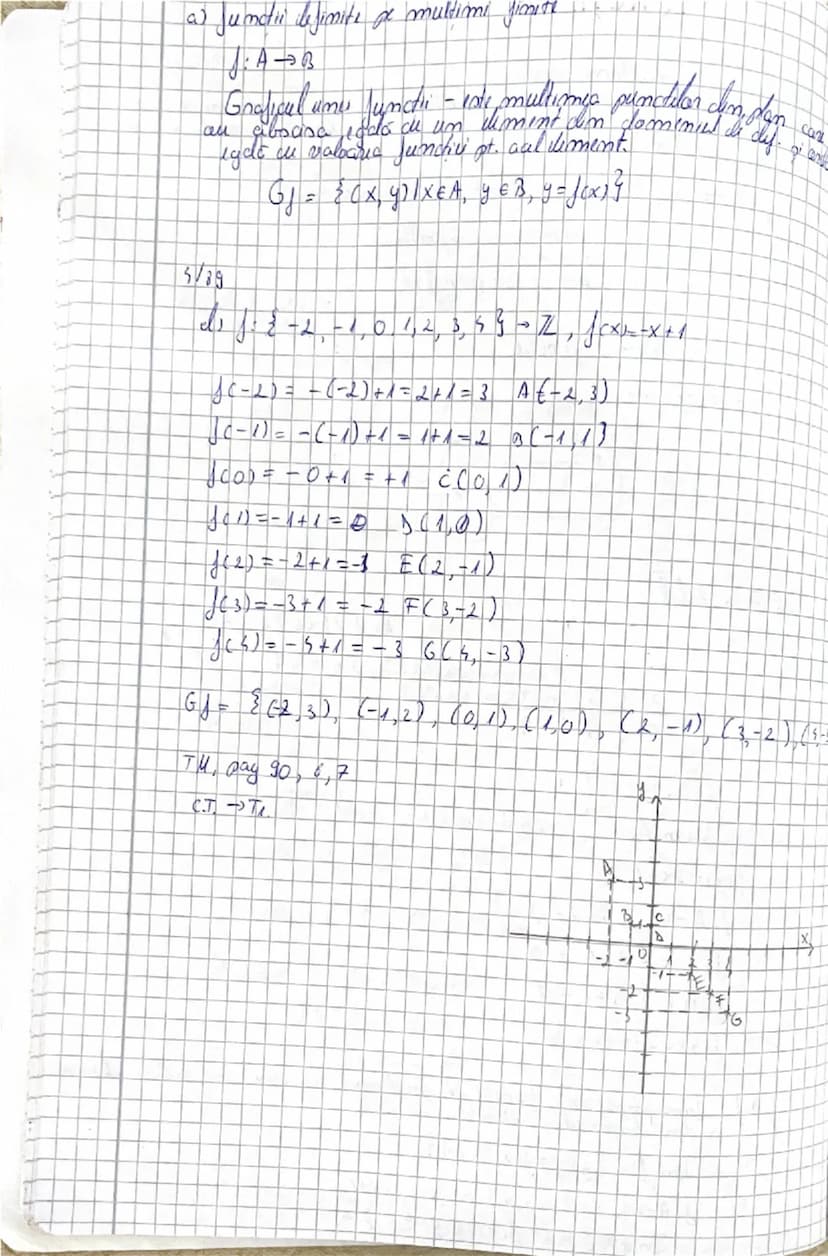 a) funcții definite pe mulțimi finite
f: A → B
Graficul unei funcții - este mulțimea punctelor din plan care
au abscisa egală cu un element din domeniul de def. și
egală cu valoarea funcției pt. acel element.
Gf = {(x, y) | x ∈ A, y ∈ B, y = f(x)}
4/89
d) f: {-2, -1, 0, 1, 2, 3, 4} → ℤ, f(x) = -x+1
f(-2) = -(-2)+1 = 2+1 = 3 A(-2, 3)
f(-1) = -(-1)+1 = 1+1 = 2 B(-1, 1)
f(0) = -0+1 = +1 C(0, 1)
f(1) = -1+1 = 0 D(1, 0)
f(2) = -2+1 = -1 E(2, -1)
f(3) = -3+1 = -2 F(3, -2)
f(4) = -4+1 = -3 G(4, -3)
Gf = {(-2, 3), (-1, 2), (0, 1), (1, 0), (2, -1), (3, -2), (4, -
TM, pag 90, 6, 7
C.T. → T1.
y
A 3
B 1 C
D x
-2 -1 0 1 2 3 4
-1 E
-2 F
-3 G